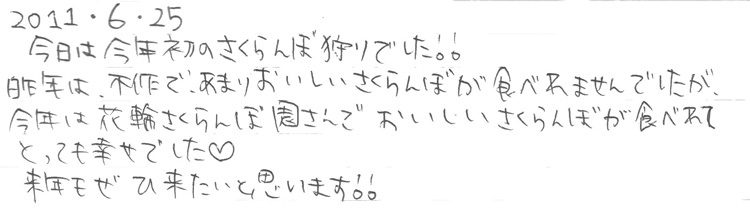 2011・6・25
今日は今年初のさくらんぼ狩りでした!!
昨年は、不作で、あまりおいしいさくらんぼが食べれませんでしたが、
今年は花輪さくらんぼ園さんでおいしいさくらんぼが食べれて
とっても幸せでした♡
来年もぜひ来たいと思います!!